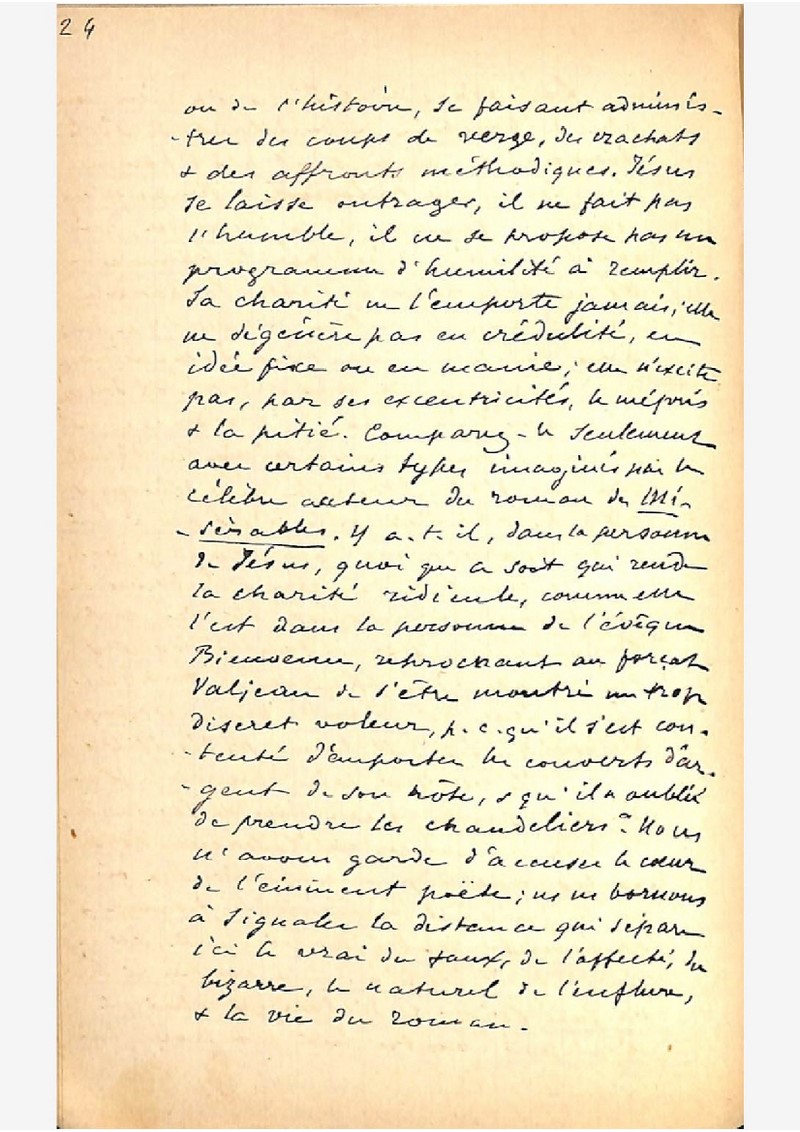 24
ou de l'histoire, se faisant adminis-
-trer des coups de verge, des crachats
& des affronts méthodiques. Jésus
se laisse outrager, il ne fait pas
l'humble, il ne se propose pas un
programme d'humilité à remplir.
Sa charité ne l'emporte jamais; elle
ne dégénère pas en crédulité, en
idée fixe ou en manie; elle n'excite
pas, par ses excentricités, le mépris
& la pitié. Comparez-le seulement
avec certains types imaginés par le
célèbre auteur du roman des Mi-
-sérables. Y a-t-il, dans la personne
de Jésus, quoi que ce soit qui rende
la charité ridicule, comme elle
l'est dans la personne de l'évêque
Bienvenu, reprochant au forçat
Valjean de s'être montré un trop
discret voleur, p. c. qu'il s'est con-
-tenté d'emporter les couverts d'ar-
-gent de son hôte, & qu'il a oublié
de prendre les chandeliers? Nous
n'avons garde d'accuser le cœur
de l'éminent poëte; ns ns bornons
à signaler la distance qui sépare
ici le vrai du faux, de l'affecté, du
bizarre, le naturel de l'enflure,
& la vie du roman.